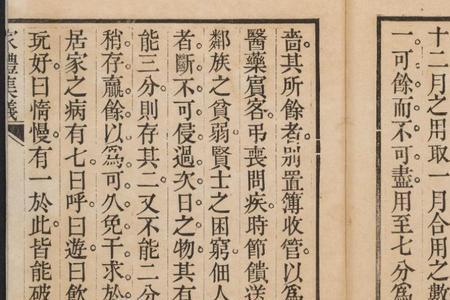 十二月之用取一月合用之數
一可餘而不可盡用至七分爲
嗇其所餘者別置簿收管以爲
醫藥賓客弔喪問疾時節饋送
鄰族之貧弱賢士之困窮佃人
者斷不可侵過次日之物其有
能三分則存其二又不能二分
稍存贏餘以爲可久免干求於
居家之病有七曰呼曰遊曰飲
玩好曰惰慢有一於此皆能破
家禮集義